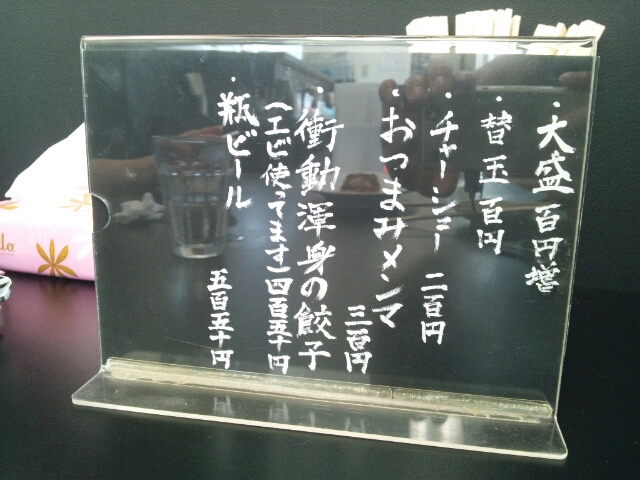 ・大盛百円増
・替玉百円
・チャーシュー二百円
・おつまみメンマ
三百円
・衝動渾身の餃子
(エビ使ってます)四百五十円
・瓶ビール
五百五十円